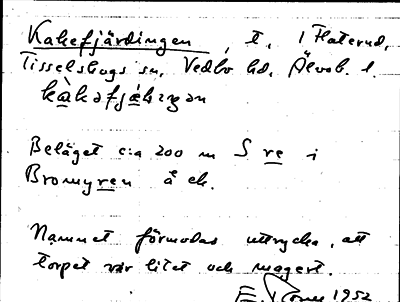 Kakefjärdingen, t, i Flaterud,
Tisselskogs sn, Vedbo hd, Älvsb. l.
Beläget c:a 200 m S re i
Bromyren å ek.
Namnet förmodas uttrycka, att
torpet var litet och magert.
E. 1952